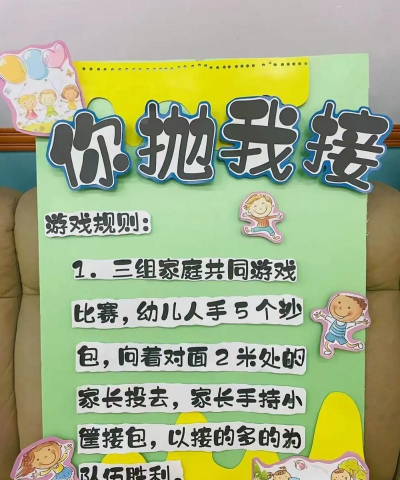 你抛我接
游戏规则:
1. 三组家庭共同游戏
比赛,幼儿人手5个沙
包,向着对面2米处的
家长投去,家长手持小
筐接包,以接的多的为
队伍胜利。